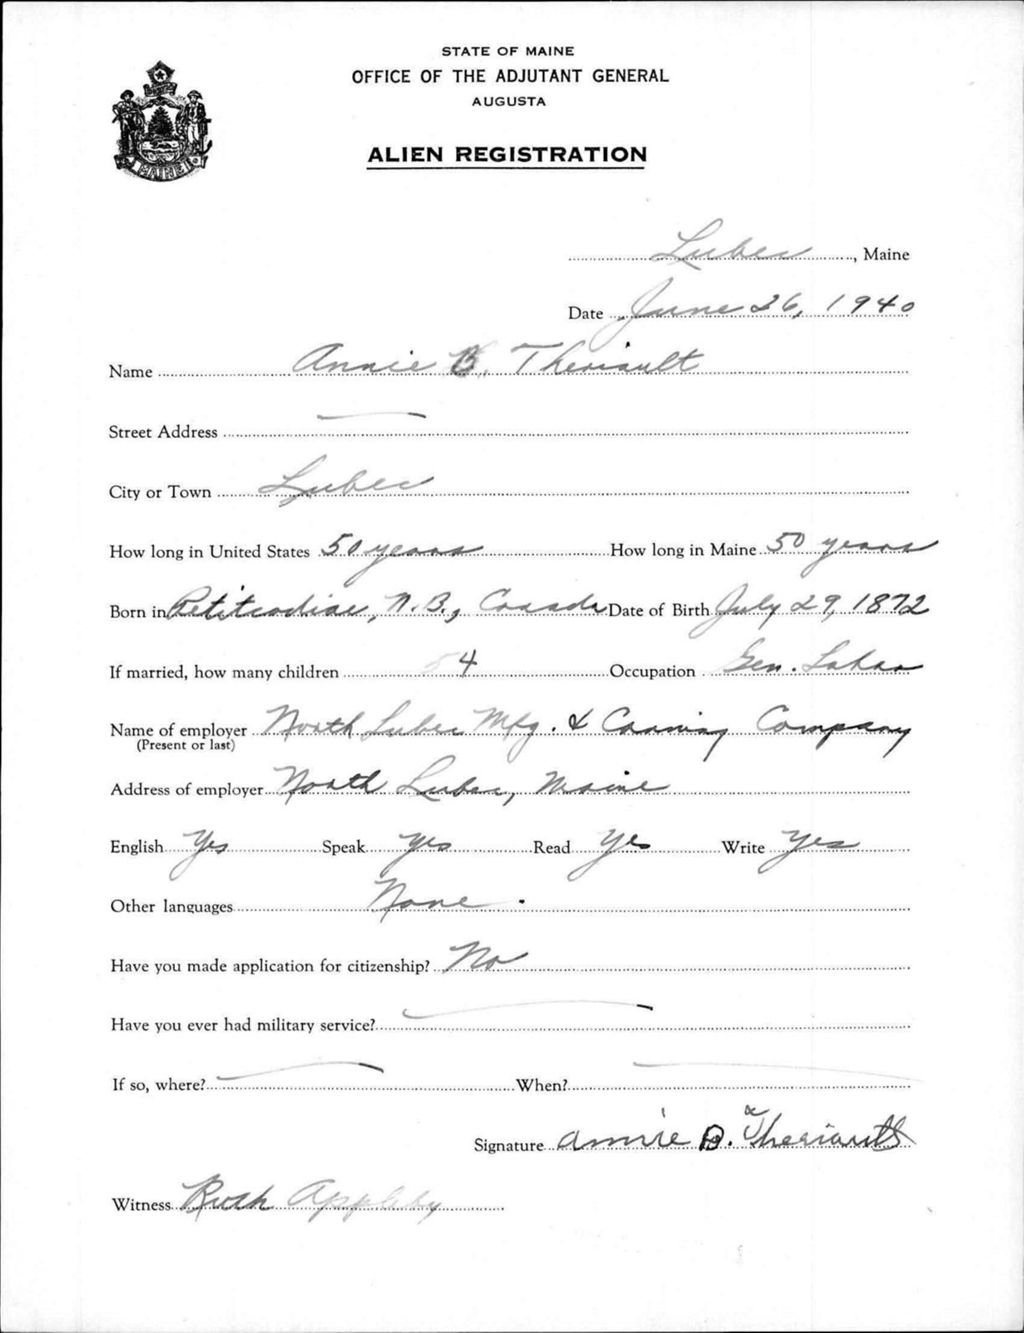 STATE OF MAINE
OFFICE OF THE ADJUTANT GENERAL
AUGUSTA
ALIEN REGISTRATION
MAINE
Lubec, Maine
Date June 26, 1940
Name Annie B. Theriault
Street Address —
City or Town Lubec
How long in United States 50 years How long in Maine 50 years
Born in Petitcodiac, N.B., Canada Date of Birth July 29, 1872
If married, how many children 4 Occupation Gen. Labor
Name of employer North Lubec Mfg. & Canning Company
(Present or last)
Address of employer North Lubec, Maine
English Yes Speak Yes Read Yes Write Yes
Other languages None.
Have you made application for citizenship? No
Have you ever had military service? —
If so, where? — When? —
Signature Annie B. Theriault
Witness Ruth Appleby